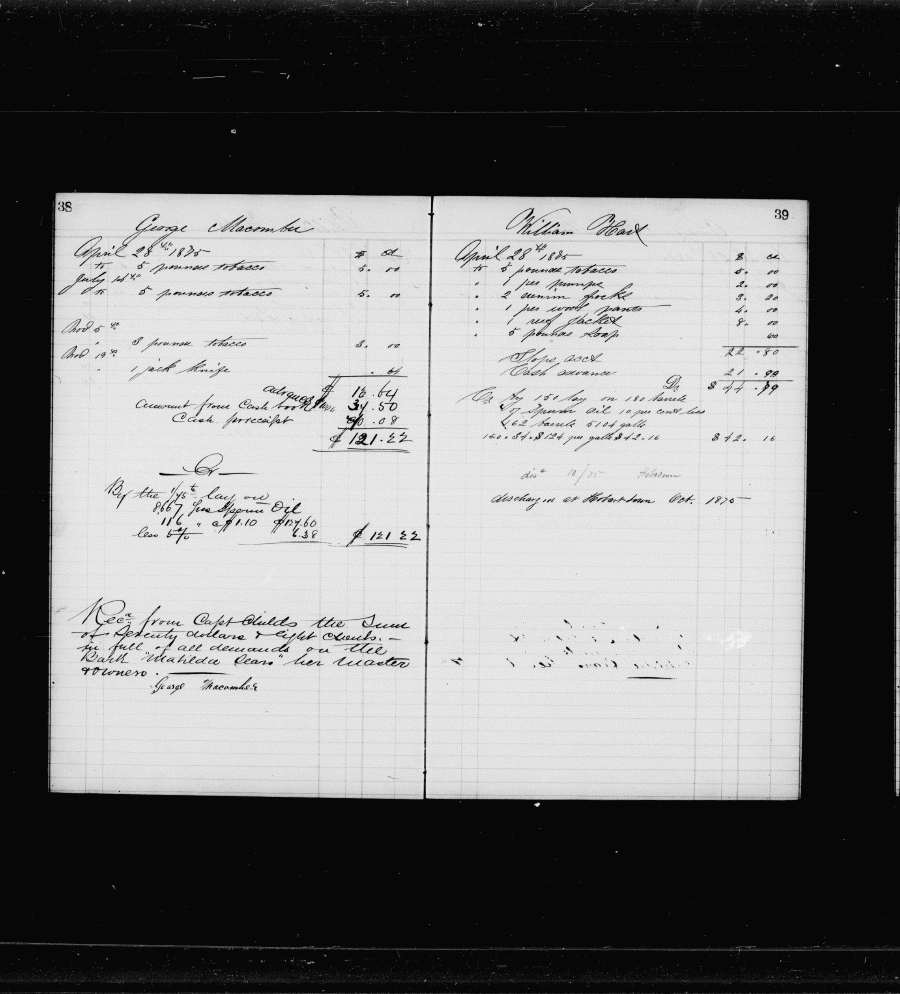 38
George Macomber
$ ct
April 28th 1875
5 pounds tobacco 5. 00
July 14th
5 pounds tobacco 5. 00
Nov 5th
" 3 pounds tobacco 3. 00
Nov 19th
" 1 jack knife . 64
$ 13.64
Amount from Cash book 34.50
Cash per receipt .08
$ 121.22
Cr
By the 1/75th lay on
8667 Sperm Oil
116 " @ $1.10 $127.60
less 5% 6.38 $ 121 22
Recd from Capt Childs the Sum
of Seventy dollars & Eight Cents. —
in full of all demands on the
Bark "Matilda Sears" her master
& owners.
George Macomber
39
William
April 28th 1875 $ ct
to 5 pounds tobacco 5. 00
" 1 per pumps 2. 00
" 2 3. 20
" 1 per wool pants 4. 00
" 1 reef Jacket 8. 00
" 5 pounds Soap 60
Slops acct 22 .80
Cash advance 21 .99
Dr $ 44 .79
Cr By 150 lay on 180 barrels
of Sperm Oil 10 per cent less
162 barrels 5104 galls
per galls $42.16 $ 42. 16
disd 10/75 Hobartown
discharged at Hobart town Oct. 1875